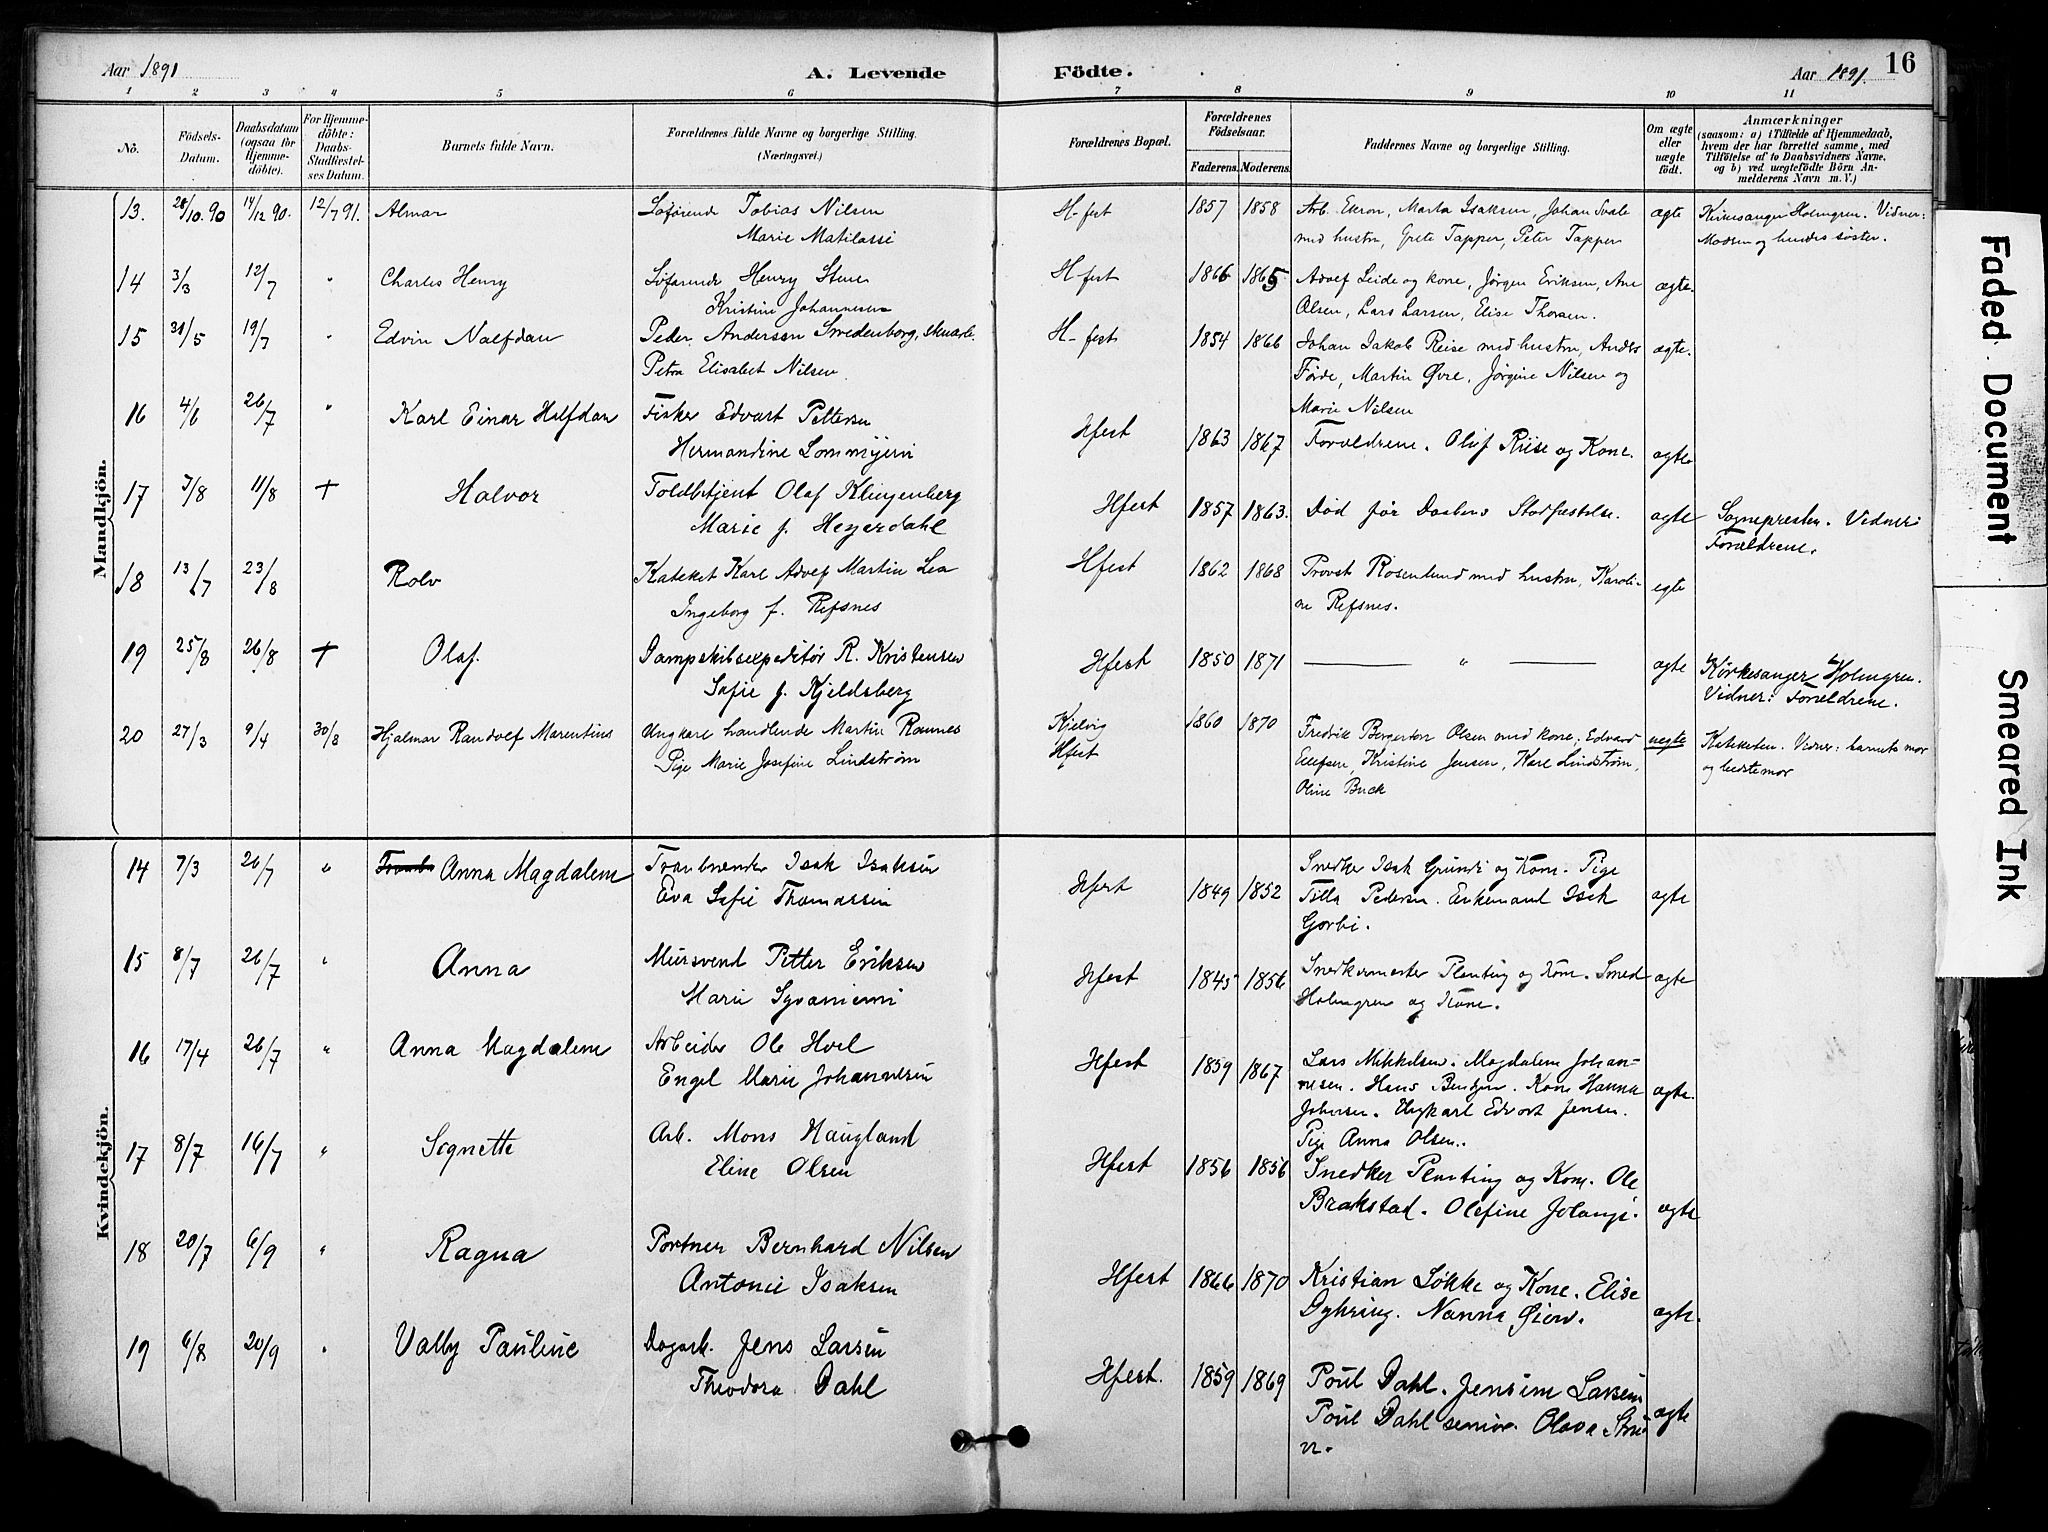 Aar 1891 A. Levende Födte. Aar 1891. 16
1 2 3 4 5 6 7 8 9 10 11
No. Födsels-Datum. Daabsdatum (ogsaa for Hjemme-döbte). For Hjemme-döbte: Daabs-Stadfæstel-ses Datum. Barnets fulde Navn. Forældrenes fulde Navne og borgerlige Stilling. (Næringsvei.) Forældrenes Bopæl. Forældrenes Födselsaar. Faderens. Moderens. Faddernes Navne og borgerlige Stilling. Om ægte eller uægte födt. Anmærkninger (saasom: a) i Tilfælde af Hjemmedaab, hvem der har forrettet samme, med Tilföielse af to Daabsvidners Navne, og b) ved uægtefödte Börn An-melderens Navn m. V.)
Mandkjön.
13. 28/10.90 14/12 90. 12/7 91. Almar Söfarende Tobias Nilsen H-fest 1857 1858 Arb. Ekron, Marta Isaksen, Johan Svale ægte Kirkesanger Holmgren. Vidner:
Marie Matilassi med hustru, Grete Tapper, Peter Tapper Modren og hendes søster.
14 3/3 12/7 " Charles Henry Söfarende Henry Stene H-fest 1866 1865 Adolf Leide og kone, Jørgen Eriksen, Ane ægte.
Kristine Johannesen Olsen, Lars Larsen, Elise Thorsen.
15 31/5 19/7 " Edvin Nalfdan Peder Andersen Swedenborg, skoarb. H-fest 1854 1866 Johan Jakob Reise med hustru, Anders ægte.
Petra Elisabet Nilsen Förde, Martin Øvre, Jørgine Nilsen og
Marie Nilsen
16 4/6 26/7 " Karl Einar Halfdan Fisker Edvart Pettersen Hfest 1863 1867 Forældrene. Olof Riise og Kone. ægte
Hermandine Lommijeri
17 7/8 11/8 + Halvor Toldbetjent Olaf Klingenberg Hfest 1857 1863. Död för Daabens Stadfæstelse. ægte Sognepresten. Vidner:
Marie f. Heyerdahl Forældrene.
18 13/7 23/8 Rolv Kateket Karl Adolf Martin Lea Hfest 1862 1868 Provst Rosenlund med hustru, Karoli- egte
Ingeborg f. Refsnes ne Refsnes.
19 25/8 26/8 + Olaf. Dampskibsexpeditör R. Kristensen Hfest 1850 1871 — " — ægte Kirkesanger Holmgren.
Sofie f. Kjeldsberg Vidner: Forældrene.
20 27/3 9/4 30/8 Hjalmar Randolf Marentius Ungkarl handlende Martin Ramnes Kjelvig 1860 1870 Fredrik Bergerton Olsen med kone, Edvard uegte Kateketen. Vidner: barnets mor
Pige Marie Josefine Lindström Hfest Ellefsen, Kristine Jensen, Karl Lindström, og bedstemor
Oline Buck
Kvindekjön.
14 7/3 26/7 " Anna Magdalene Tranbrænder Isak Isaksen Hfest 1849 1852 Snedker Isak Grundi og Kone. Pige ægte
Eva Sofie Thomassen Tilla Pedersen. Enkemand Isak
Gorbi.
15 8/7 26/7 " Anna Mursvend Petter Eriksen Hfest 1845 1856 Snedkermester Plenting og Kone. Smed ægte
Marie Syvaniemi Holmgren og Kone.
16 17/4 26/7 " Anna Magdalene Arbeider Ole Hoel Hfest 1859 1867 Lars Mikkelsen. Magdalene Johan- ægte.
Engel Marie Johannesen nesen. Hans Bentzen. Kone Hanna
Johnsen. Ungkarl Edvart Jensen.
Pige Anna Olsen.
17 8/7 16/7 " Signette Arb. Mons Haugland Hfest 1856 1856 Snedker Plenting og Kone. Ole ægte
Eline Olsen Brakstad. Olefine Jolangi.
18 20/7 6/9 " Ragna Portner Bernhard Nilsen Hfest 1866 1870 Kristian Løkke og Kone. Elise ægte.
Antonie Isaksen Dyhring. Nanna Øien.
19 6/8 20/9 " Vally Pauline Dagarb. Jens Larsen Hfest. 1859 1869 Poul Dahl. Jensine Larsen ægte
Theodora Dahl Poul Dahl senior. Olava Strø-
m.
Faded Document
Smeared Ink